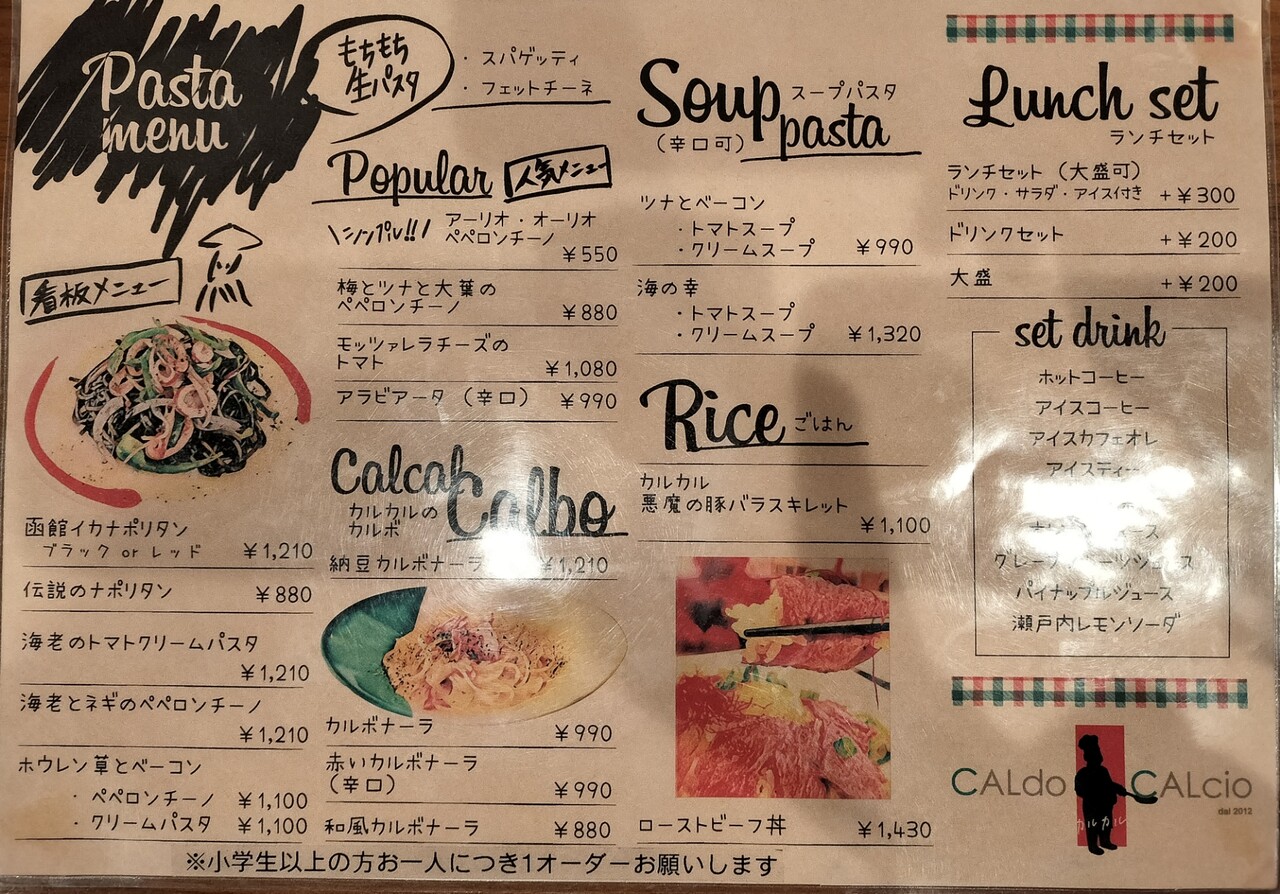 Pasta
menu
もちもち
生パスタ
・スパゲッティ
・フェットチーネ
看板メニュー
函館イカナポリタン
ブラック or レッド ¥1,210
伝説のナポリタン ¥880
海老のトマトクリームパスタ
¥1,210
海老とネギのペペロンチーノ
¥1,210
ホウレン草とベーコン
・ペペロンチーノ ¥1,100
・クリームパスタ ¥1,100
Popular 人気メニュー
\シンプル!!/ アーリオ・オーリオ
ペペロンチーノ
¥550
梅とツナと大葉の
ペペロンチーノ ¥880
モッツァレラチーズの
トマト ¥1,080
アラビアータ (辛口) ¥990
Calcal
カルカルの
カルボ
Calbo
納豆カルボナーラ ¥1,210
カルボナーラ ¥990
赤いカルボナーラ
(辛口) ¥990
和風カルボナーラ ¥880
Soup スープパスタ
(辛口可) pasta
ツナとベーコン
・トマトスープ
・クリームスープ ¥990
海の幸
・トマトスープ
・クリームスープ ¥1,320
Rice ごはん
カルカル
悪魔の豚バラスキレット
¥1,100
ローストビーフ丼 ¥1,430
Lunch set
ランチセット
ランチセット (大盛可)
ドリンク・サラダ・アイス付き +¥300
ドリンクセット +¥200
大盛 +¥200
set drink
ホットコーヒー
アイスコーヒー
アイスカフェオレ
アイスティー
パイナップルジュース
瀬戸内レモンソーダ
CALdo CALcio
dal 2012
カルカル
※小学生以上の方お一人につき1オーダーお願いします